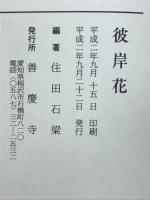 彼岸花
平成二年九月 十五 日 印刷
平成二年九月二十二日 発行
編著 住田石梁
発行所 善慶寺
愛知県稲沢市石橋町八二〇
電話(〇五八七)三二-二五三二